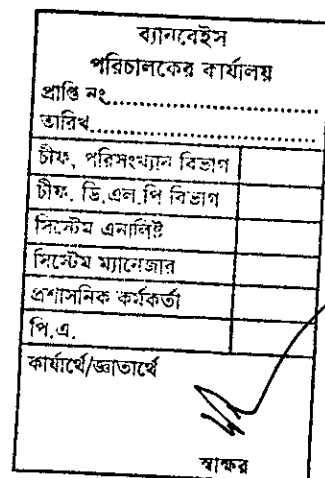 ব্যানবেইস
পরিচালকের কার্যালয়
প্রাপ্তি নং..........................
তারিখ..............................
চীফ, পরিসংখ্যান বিভাগ
চীফ, ডি.এল.পি বিভাগ
সিস্টেম এনালিষ্ট
সিস্টেম ম্যানেজার
প্রশাসনিক কর্মকর্তা
পি.এ.
কার্যার্থে/জ্ঞাতার্থে
স্বাক্ষর